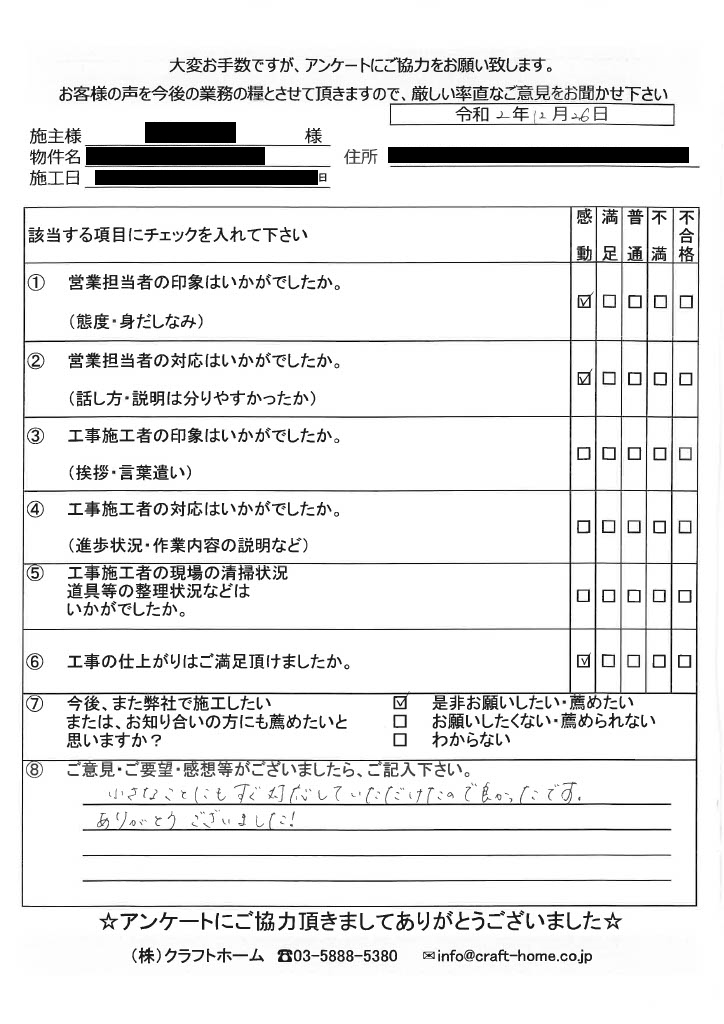 大変お手数ですが、アンケートにご協力をお願い致します。
お客様の声を今後の業務の糧とさせて頂きますので、厳しい率直なご意見をお聞かせ下さい
令和 2年12月26日
施主様 様
物件名 住所
施工日 日
該当する項目にチェックを入れて下さい 感動 満足 普通 不満 不合格
① 営業担当者の印象はいかがでしたか。
(態度・身だしなみ) ☑ □ □ □ □
② 営業担当者の対応はいかがでしたか。
(話し方・説明は分りやすかったか) ☑ □ □ □ □
③ 工事施工者の印象はいかがでしたか。
(挨拶・言葉遣い) □ □ □ □ □
④ 工事施工者の対応はいかがでしたか。
(進歩状況・作業内容の説明など) □ □ □ □ □
⑤ 工事施工者の現場の清掃状況
道具等の整理状況などは □ □ □ □ □
いかがでしたか。
⑥ 工事の仕上がりはご満足頂けましたか。 ☑ □ □ □ □
⑦ 今後、また弊社で施工したい ☑ 是非お願いしたい・薦めたい
または、お知り合いの方にも薦めたいと □ お願いしたくない・薦められない
思いますか？ □ わからない
⑧ ご意見・ご要望・感想等がございましたら、ご記入下さい。
小さなことにもすぐ対応していただけたので良かったです。
ありがとうございました!
☆アンケートにご協力頂きましてありがとうございました☆
(株)クラフトホーム ☎03-5888-5380 ✉info@craft-home.co.jp